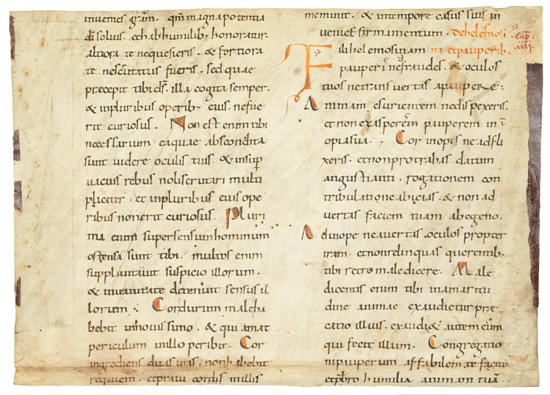 inuenies gram̄. qm̄ magna potentia
dī solius. et ab humilib; honoratur.
altiora te ne quesieris. & fortiora
te ne scrutatus fueris. sed quae
precepit tibi dṡ. illa cogita semper.
& in pluribus operib; eius ne fue
rit curiosus. Non est enim tibi
necessarium ea quae abscondita
sunt uidere oculis tuis. & in sup
uacuis rebus noli scrutari multi
pliciter. et in pluribus eius ope
ribus non erit curiosus. Pluri
ma enim super sensum hominum
ostensa sunt tibi. multos enim
supplantauit suspicio illorum.
& in uanitate detenuit sensus il
lorum. Cor durum male ha
bebit in nouissimo. & qui amat
periculum in illo peribit. Cor
ingrediens duas uias. non habebit
requiem. et praui cordis in illis
meminit. & in tempore casus sui in
veniet firmamentum. De helemosi
Fili helemosinam na et pauperib.
pauperis ne fraudes. & oculos
tuos ne transuertas a paupere.
Animam esurientem ne dispexeris.
et non exasperem pauperem in in
opia sua. Cor inopis ne adfli
xeris. et non protrahas datum
angustianti. rogationem con
tribulati ne abicias. & non ad
uertas faciem tuam ab egeno.
Ad inope ne auertas oculos propter
iram. et non relinquas querentib;
tibi retro maledicere. Male
dicentis enim tibi in amaritu
dine animae exaudietur præ
catio illius. exaudi& autem eum
qui fecit illum. Congregatio
ni pauperum affabilem te facito
et pr̄bro humilia animam tuā.